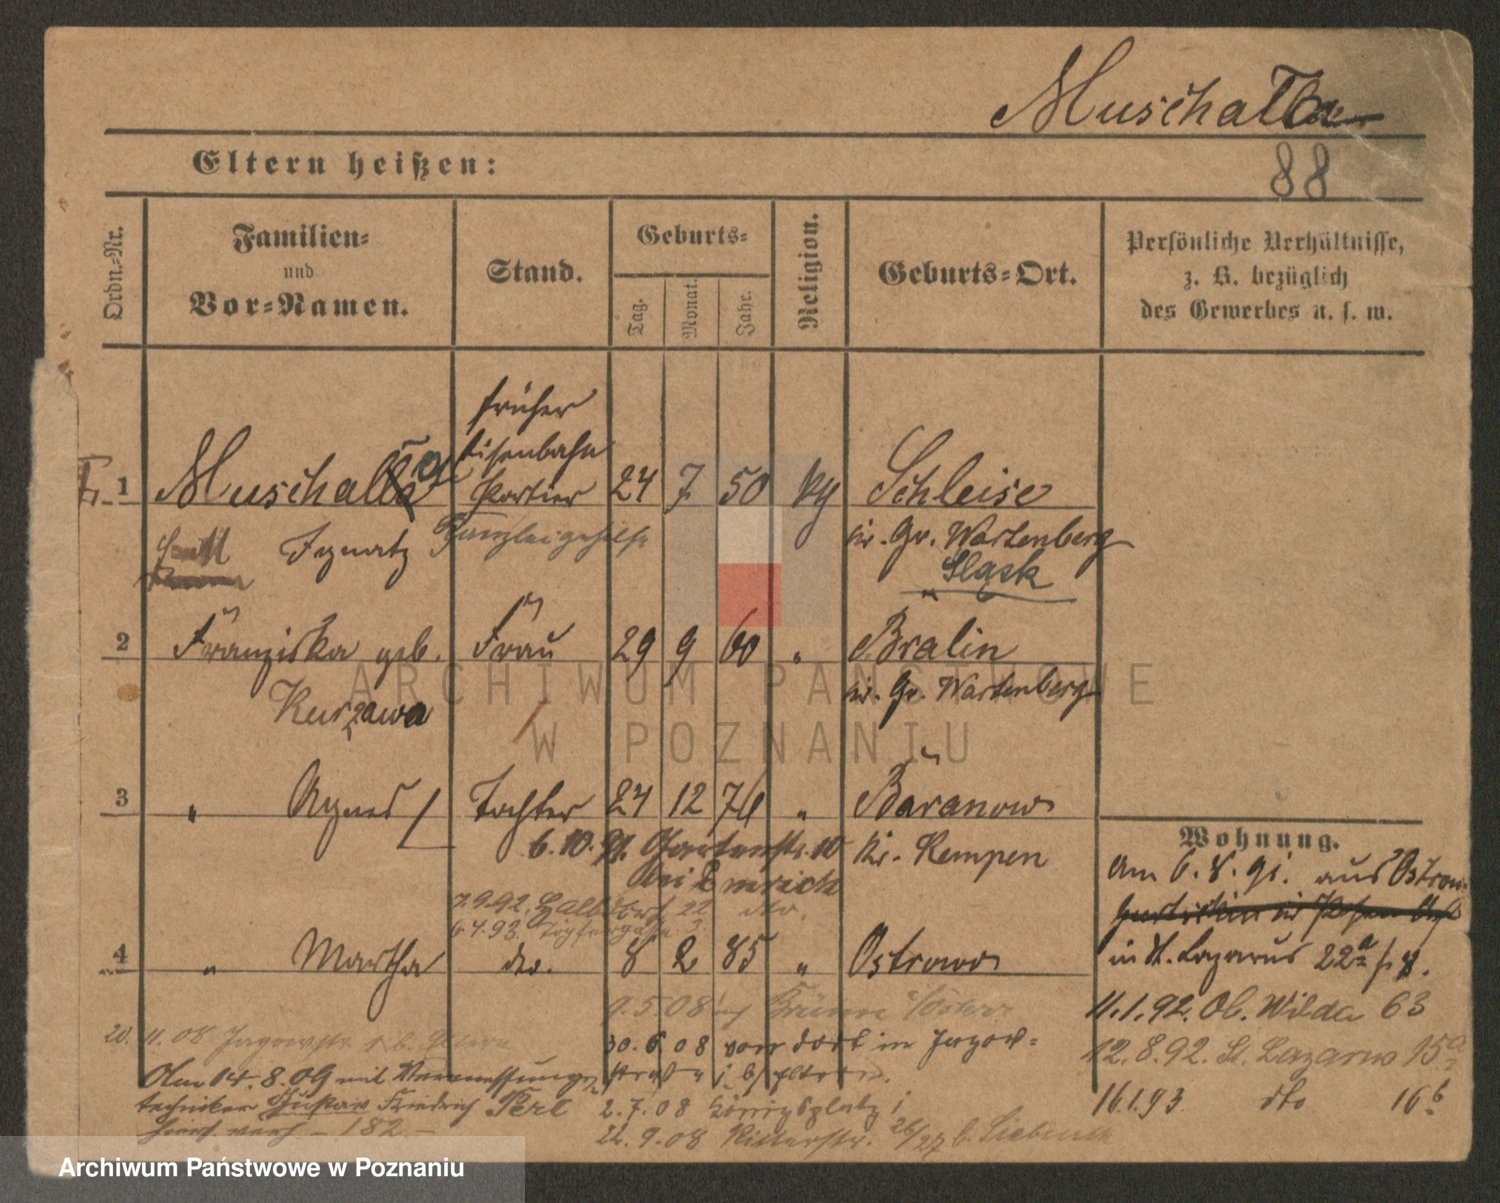 Muschalla
88
Eltern heißen:
Ordn.-Nr.
Familien-
und
Vor-Namen.
Stand.
Geburts-
Tag.
Monat.
Jahr.
Religion.
Geburts-Ort.
Persönliche Verhältnisse,
z. B. bezüglich
des Gewerbes u. s. w.
früher
Eisenbahn
1 Muschalla Portier 24 7 50 Schleise
Ignatz Kanzleigehilfe Kr. Gr. Wartenberg
Sląsk
2 Franziska geb. Frau 29 9 60 " Bralin
Kurzawa Kr. Gr. Wartenberg
ARCHIWUM PAŃSTWOWE
W POZNANIU
3 " Agnes Tochter 24 12 " Baranow
6.10.91. Gartenstr. 10 Kr. Kempen
bei Emrich
7.9.92. Halbdorfstr. 22 dto.
6.4.93. Töpfergasse 3
4 " Martha dto. 8 2 85 " Ostrowo
Wohnung.
Am 6.8.91. aus Ostrowo
in St. Lazarus 22a
11.1.92. Ob. Wilda 63
12.8.92. St. Lazarus 15a
16.1.93 dto 16b
9.5.08
20. 11. 08 Jagowstr. b. Eltern
30.6.08 von dort in Jagow-
straße b. Eltern.
Am 14.8.09 mit Vermessungs-
techniker Gustav Friedrich Perl
2.7.08 Königsplatz
22.9.08 Ritterstr.
Archiwum Państwowe w Poznaniu